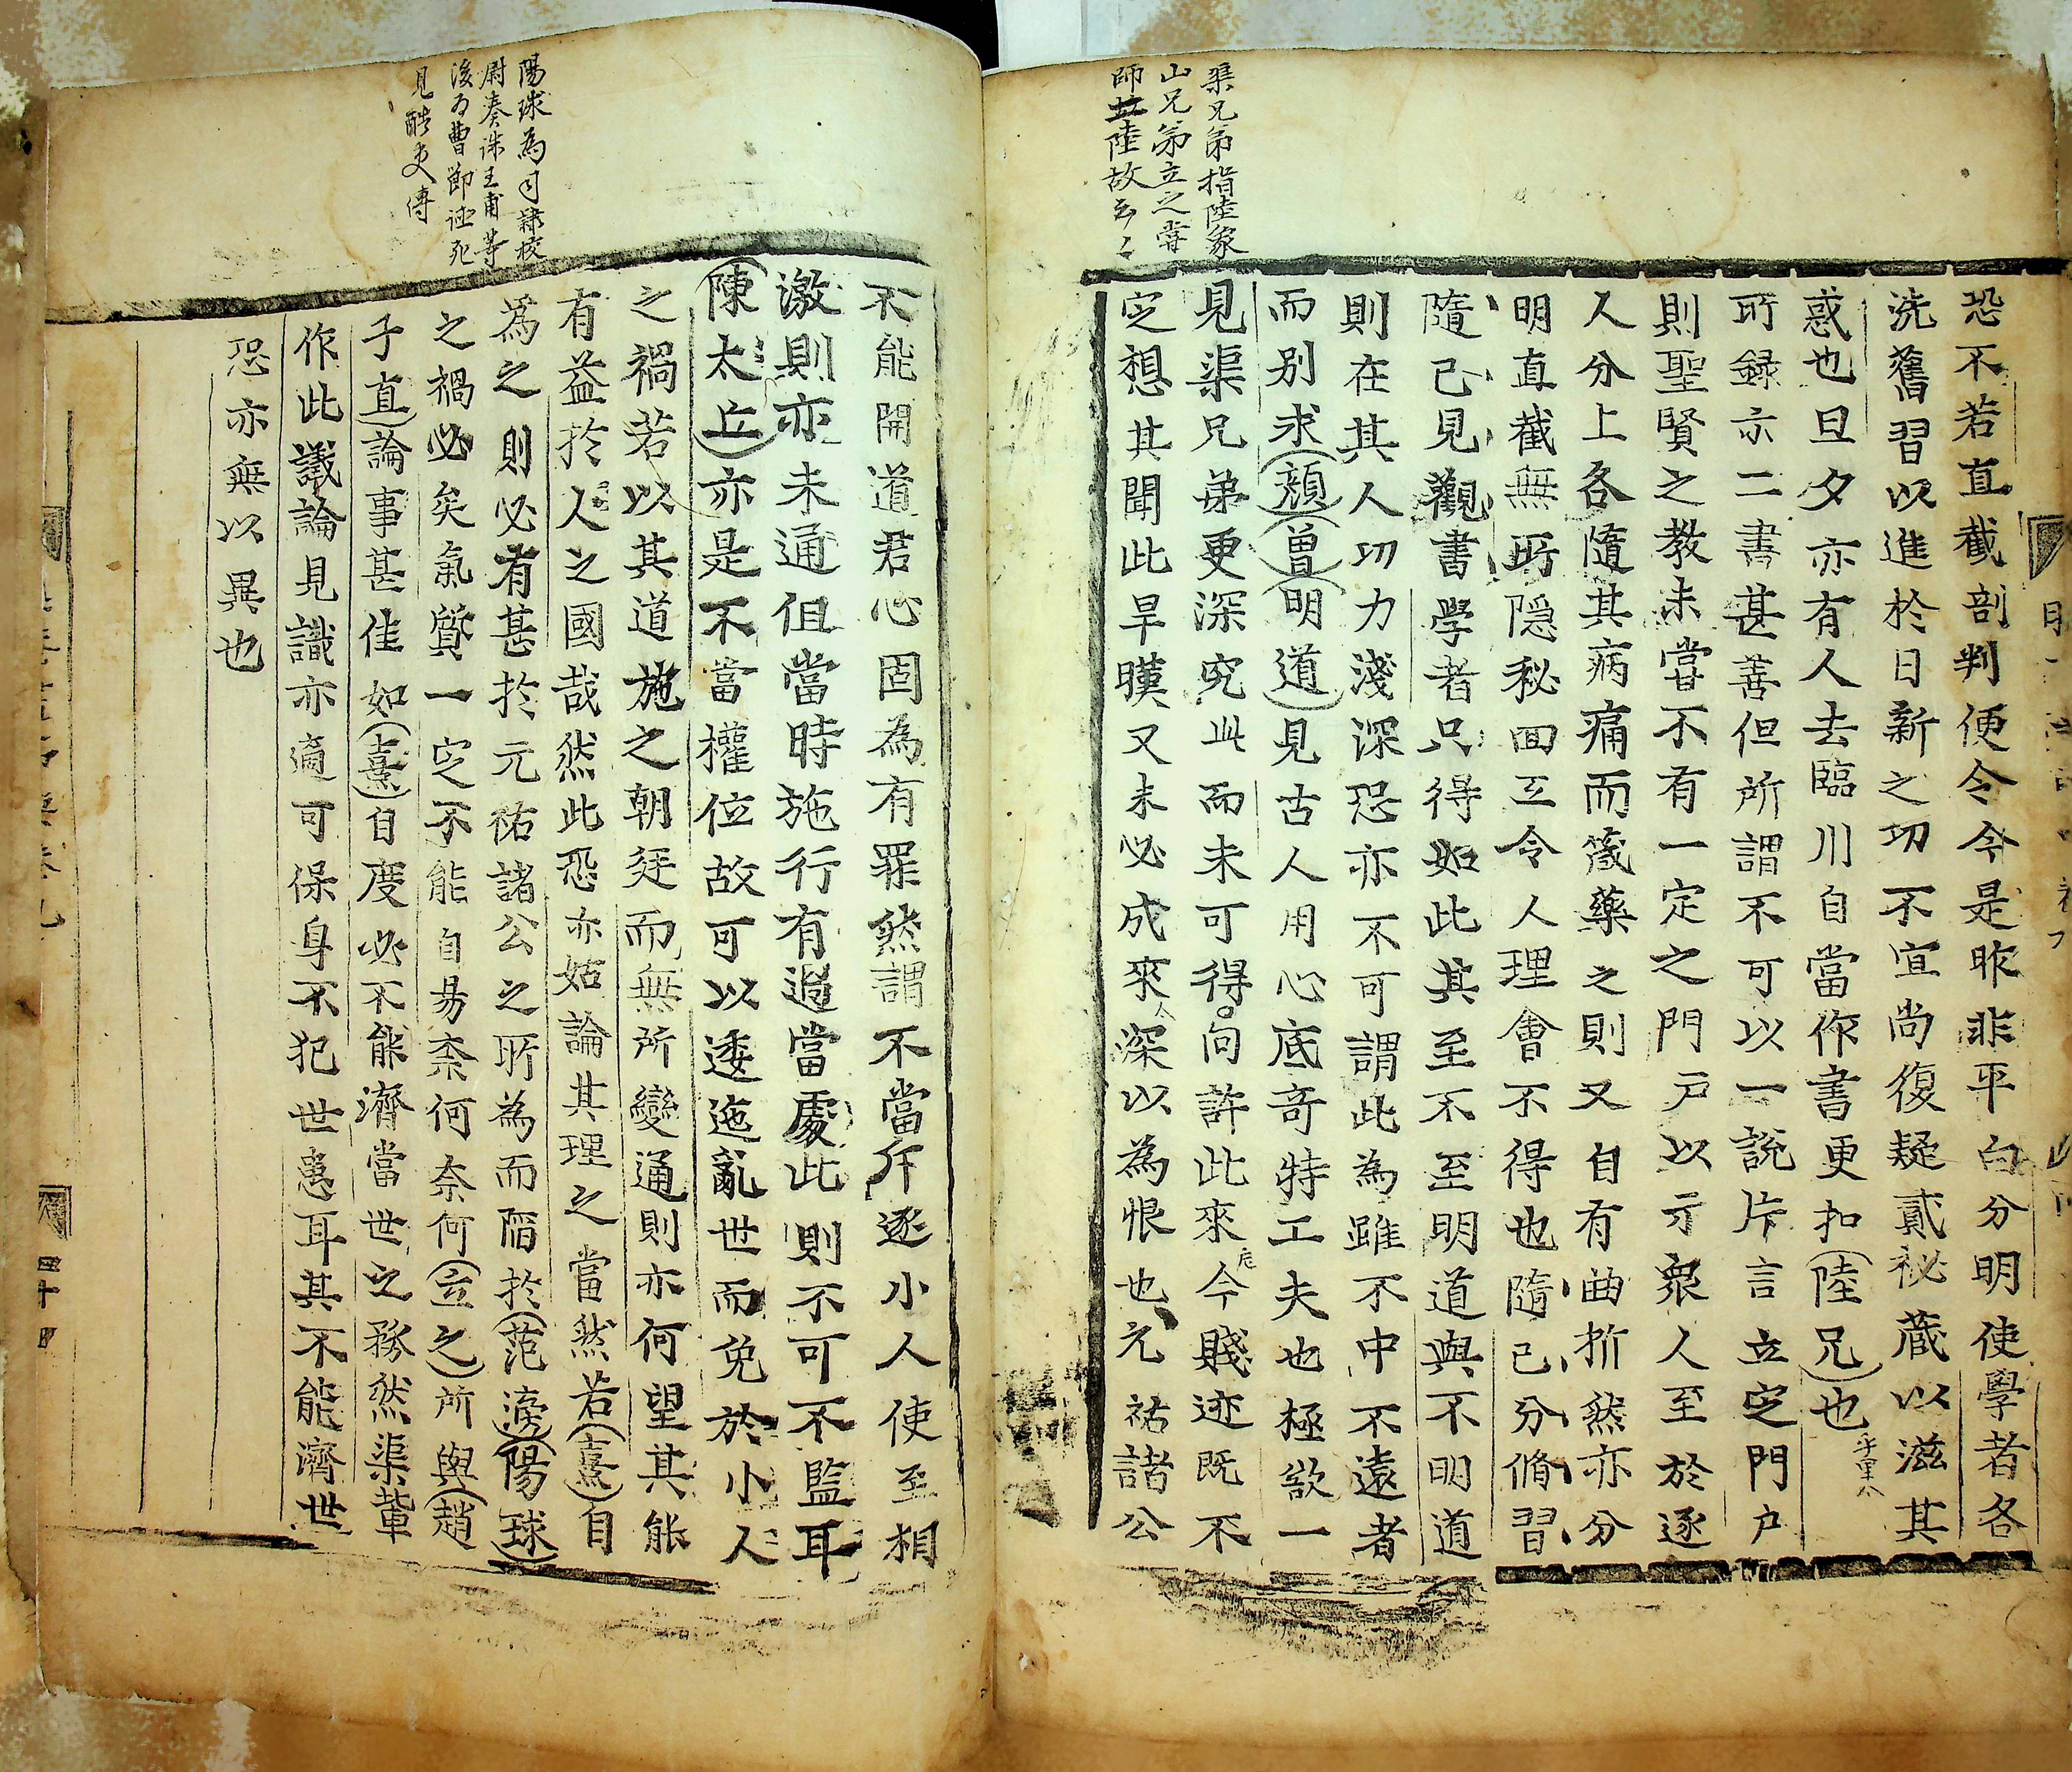 渠兄弟指陸象
山兄弟立之嘗
師陸故云々
恐不若直截剖判便令今是昨非平白分明使學者各
洗舊習以進於日新之功不宜尚復疑貳秘藏以滋其
惑也旦夕亦有人去臨川自當作書更扣陸兄也
所録示二書甚善但所謂不可以一說片言立定門户
則聖賢之教未嘗不有一定之門戸以示衆人至於逐
人分上各隨其病痛而箴藥之則又自有曲折然亦分
明直截無所隱秘囬互令人理會不得也隨己分脩習
隨己見觀書學者只得如此其至不至明道與不明道
則在其人功力淺深恐亦不可謂此為雖不中不遠者
而别求顔曾明道見古人用心底奇特工夫也極欲一
見渠兄弟更深究此而未可得向許此來今賤迹既不
定想其聞此旱暵又未必成來深以為恨也元祐諸公
陽球為司隸校
尉奏誅王甫等
後為曹節誣死
見酷吏傳
不能開道君心固為有罪然謂不當斥逐小人使至相
激則亦未通但當時施行有過當處此則不可不監耳
陳太丘亦是不當權位故可以逶迤亂世而免於小人
之禍若以其道施之朝廷而無所變通則亦何望其能
有益於人之國哉然此恐亦姑論其理之當然若熹自
爲之則必有甚於元祐諸公之所為而陷於范滂陽球
之禍必矣氣質一定不能自易柰何奈何立之所與趙
子直論事甚佳如熹自度必不能濟當世之務然渠軰
作此議論見識亦適可保身不犯世患耳其不能濟世
恐亦無以異也
四十